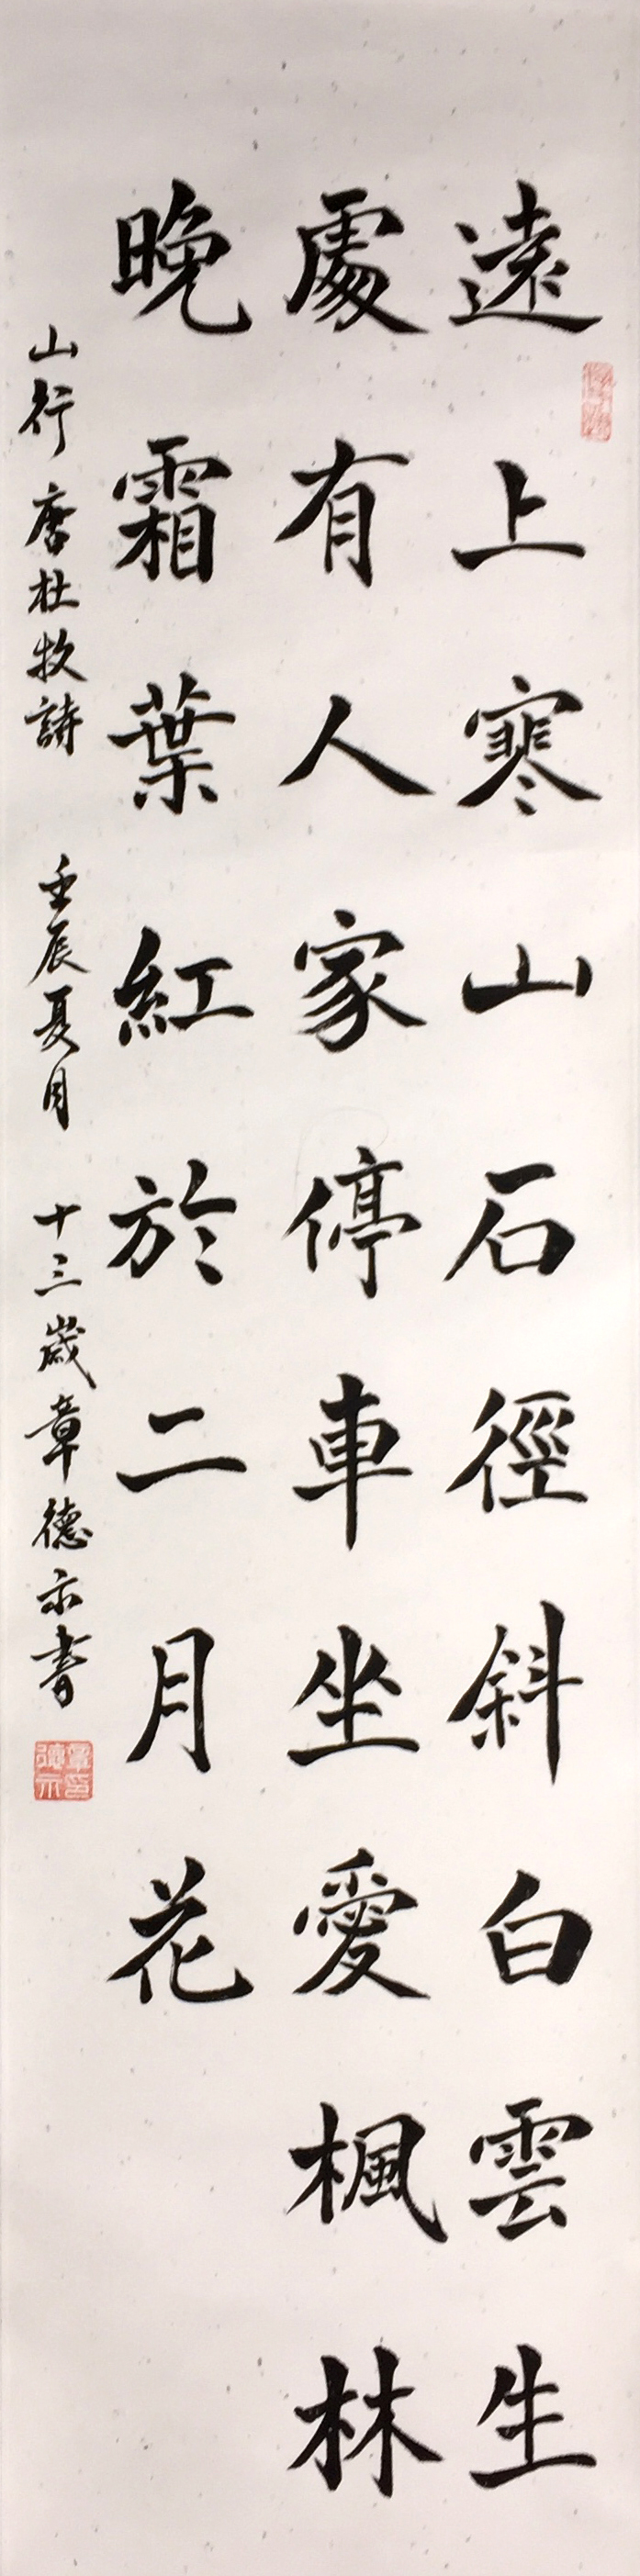 遠上寒山石徑斜白雲生
處有人家停車坐愛楓林
晚霜葉紅於二月花
山行 唐杜牧詩 壬辰夏月 十三歲章德示書